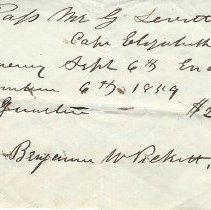 Pass Mr G Levitt
Cape Elizabeth
Sept 6th End
6th 1859
Quarter - $2
Benjamin W Pickett.